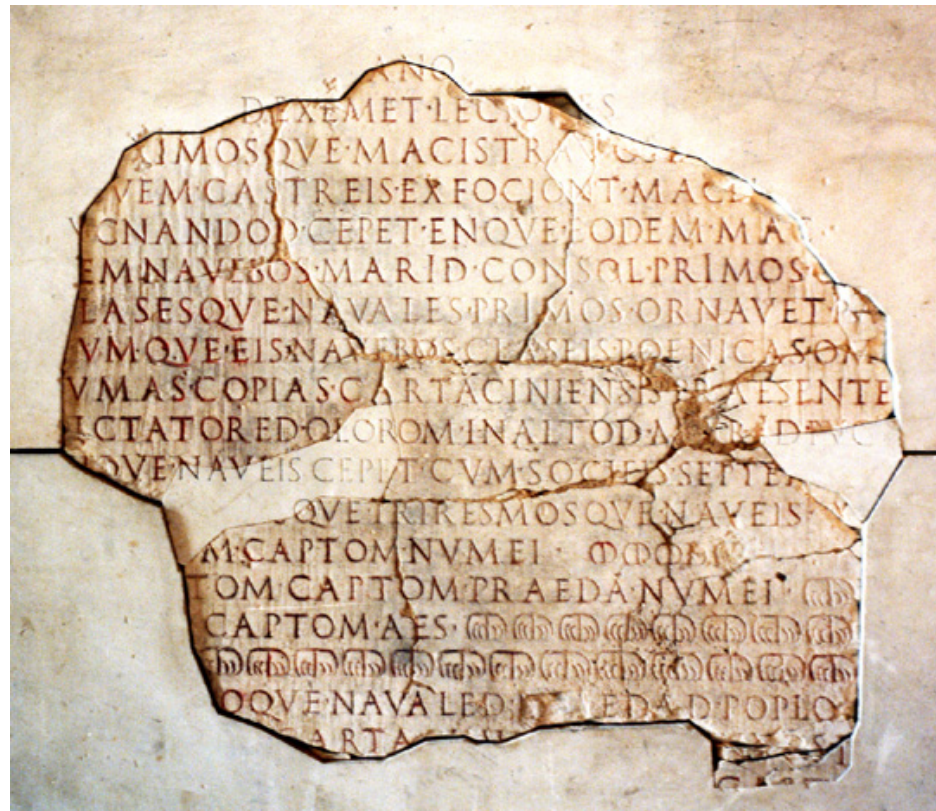 ANO
D·EXEMET·LECIONES
XIMOSQVE·MACISTRATOS
VEM·CASTREIS·EXFOCIONT·MACE
VCNANDOD·CEPET·ENQVE·EODEM·MAC
EM·NAVEBOS·MARID·CONSOL·PRIMOS·C
LASESQVE·NAVALES·PRIMOS·ORNAVET·PA
VMQVE·EIS·NAVEBOS·CLASEIS·POENICAS·OM
VMAS·COPIAS·CARTACINIENSIS·PRAESENTE
ICTATORED·OLOROM·IN·ALTOD·MARID·PVC
QVE·NAVEIS·CEPET·CVM·SOCIEIS·SEPTE
OSQVE·TRIRESMOSQVE·NAVEIS
M·CAPTOM·NVMEI ↀↀↀ
TOM·CAPTOM·PRAEDA·NVMEI·ↈ
CAPTOM·AES·ↈↈↈↈↈↈↈↈↈ
ↈↈↈↈↈↈↈↈↈↈↈↈↈↈ
OQVE·NAVALED·PRAEDAD·POPLO
ARTA